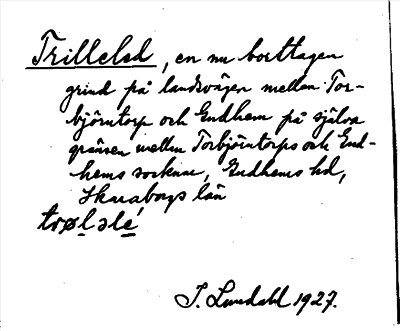 Trilleled, en nu borttagen
grind på landsvägen mellan Tor-
björntorp och Gudhem på själva
gränsen mellan Torbjörntorps och Gud-
hems socknar, Gudhems hd,
Skaraborgs län
trøləlé
I. Lundahl 1927.